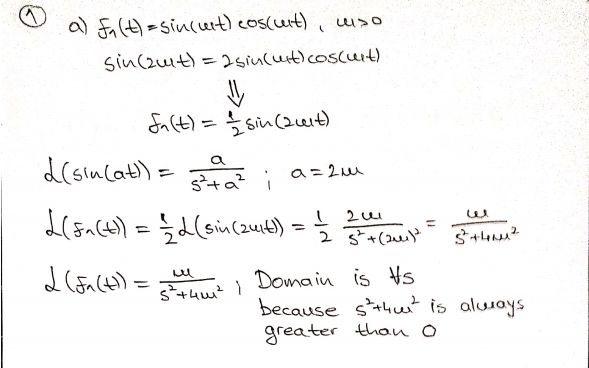 ① a) f₁(t) = sin(ωt) cos(ωt) , ω>0
sin(2ωt) = 2sin(ωt)cos(ωt)
⇓
f₁(t) = 1/2 sin(2ωt)
L(sin(at)) = a/(s²+a²) ; a = 2ω
L(f₁(t)) = 1/2 L(sin(2ωt)) = 1/2 2ω/(s²+(2ω)²) = ω/(s²+4ω²)
L(f₁(t)) = ω/(s²+4ω²) ; Domain is ∀s
because s²+4ω² is always
greater than 0